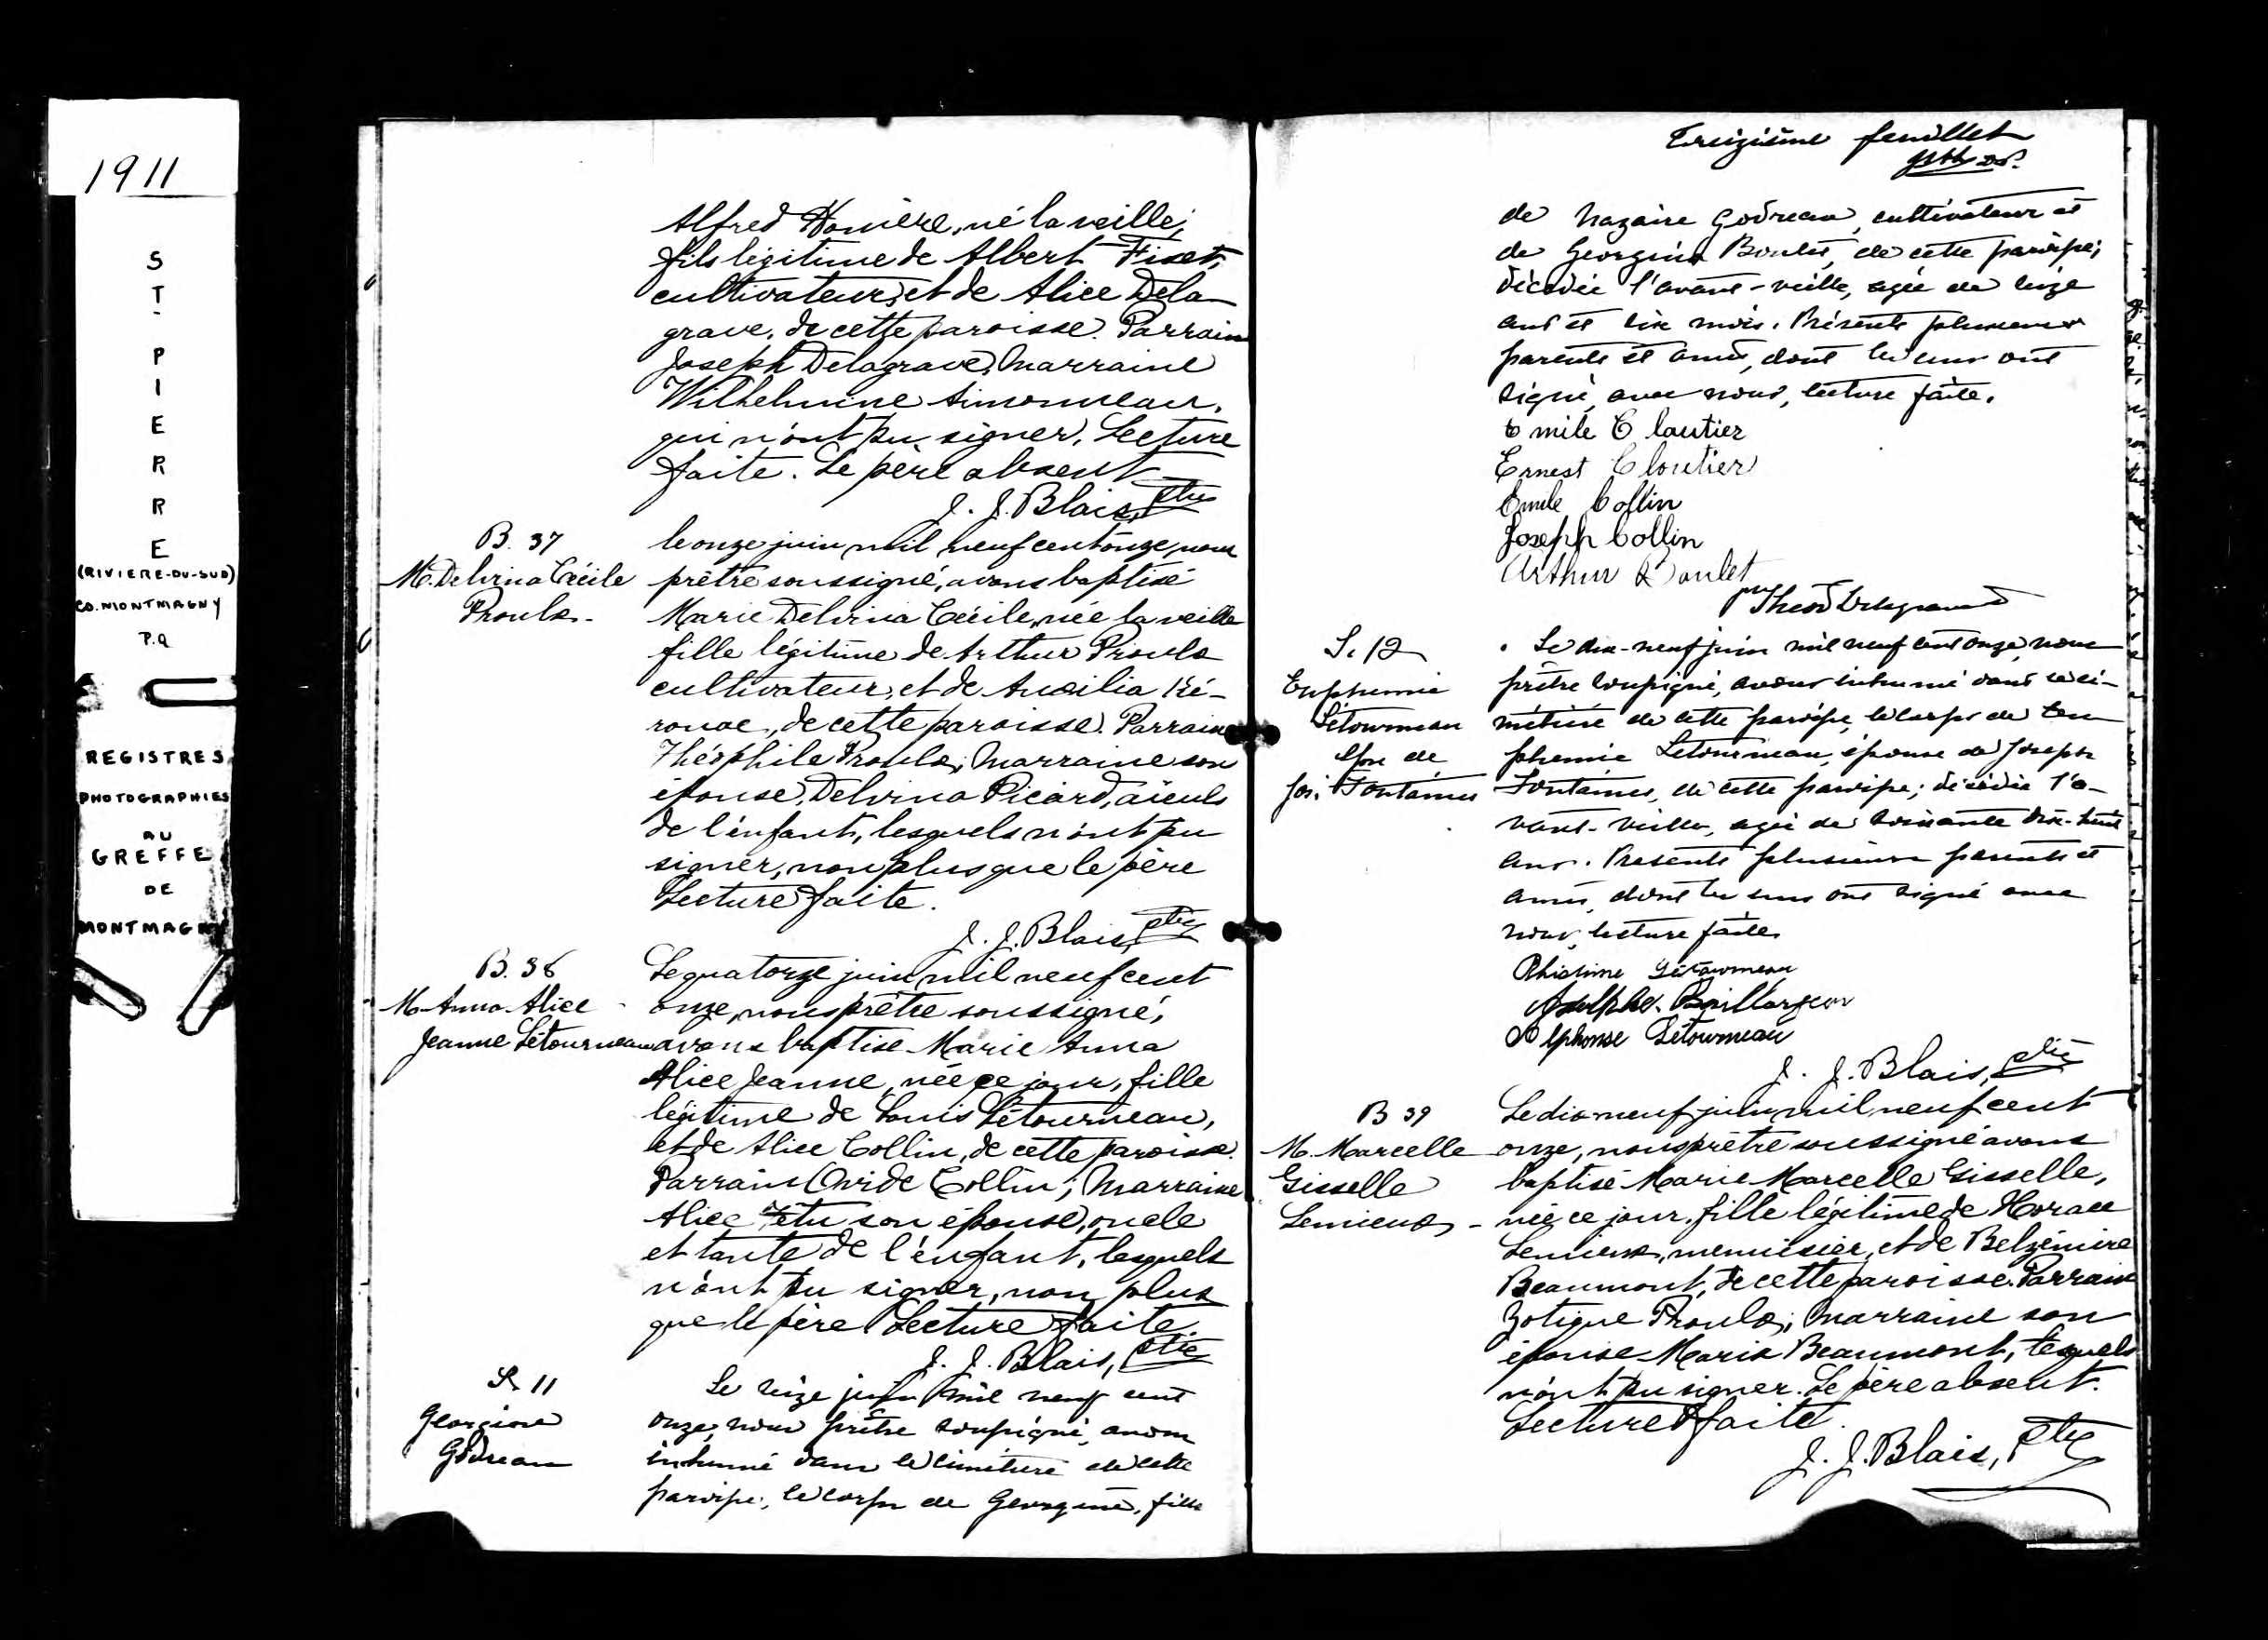 1911
ST. PIERRE
(RIVIERE-DU-SUD)
CO. MONTMAGNY
P.Q
REGISTRES
PHOTOGRAPHIES
AU
GREFFE
DE
MONTMAGNY
Alfred Honière, né la veille,
fils légitime de Albert Fiset,
cultivateur, et de Alice Dela
grave, de cette paroisse. Parrain
Joseph Delagrave, Marraine
Wilhelmine Simonneau,
qui n'ont pu signer. Lecture
faite. Le père absent
J. J. Blais, Ptre
B. 37
M. Delvina Cécile
Proulx.
le onze juin mil neuf cent onze, nous
prêtre soussigné, avons baptisé
Marie Delvina Cécile, née la veille
fille légitime de Arthur Proulx
cultivateur, et de Auxilia Ké-
rouac, de cette paroisse. Parrain
Théophile Proulx, Marraine son
épouse, Delvina Picard, aieuls
de l'enfant, lesquels n'ont pu
signer, non plus que le père
Lecture faite.
J. J. Blais, Ptre
B. 38
M. Anna Alice
Jeanne Létourneau
Le quatorze juin mil neuf cent
onze, nous prêtre soussigné,
avons baptisé Marie Anna
Alice Jeanne, née ce jour, fille
légitime de Louis Létourneau,
et de Alice Collin, de cette paroisse.
Parrain Ovide Collin; Marraine
Alice Têtu son épouse, oncle
et tante de l'enfant, lesquels
n'ont pu signer, non plus
que le père Lecture faite.
J. J. Blais, Ptre
S. 11
Georgine
Godreau
Le seize juin mil neuf cent
onze, nous prêtre soussigné, avons
inhumé dans le cimetière de cette
paroisse, le corps de Georgine, fille
Treizième feuillet
de Nazaire Godreau, cultivateur et
de Georgina Boulet, de cette paroisse;
décédée l'avant-veille, agée de seize
ans et dix mois. Présents plusieurs
parents et amis, dont les uns ont
signé, avec nous, lecture faite.
Emile Cloutier
Ernest Cloutier
Emile Collin
Joseph Collin
Arthur Boulet
S. 12
Euphemie
Létourneau
épse de
Jos. Fontaines
Le dix-neuf juin mil neuf cent onze, nous
prêtre soussigné, avons inhumé dans le ci-
metière de cette paroisse, le corps de Eu
phemie Letourneau, épouse de Joseph
Fontaines, de cette paroisse; décédée l'a-
vant-veille, agée de soixante dix-huit
ans. Presents plusieurs parents et
amis, dont les uns ont signé avec
nous, lecture faite.
Phisime Létourneau
Adolphe Baillargeon
Alphonse Létourneau
J. J. Blais, Ptre
B 39
M. Marcelle
Gisselle
Lemieux
Le dix neuf juin mil neuf cent
onze, nous prêtre soussigné avons
baptisé Marie Marcelle Gisselle,
née ce jour, fille légitime de Horace
Lemieux, menuisier, et de Belzémire
Beaumont, de cette paroisse. Parrain
Zotique Proulx; Marraine son
épouse Maria Beaumont, lesquels
n'ont pu signer. Le père absent.
Lecture faite.
J. J. Blais, Ptre